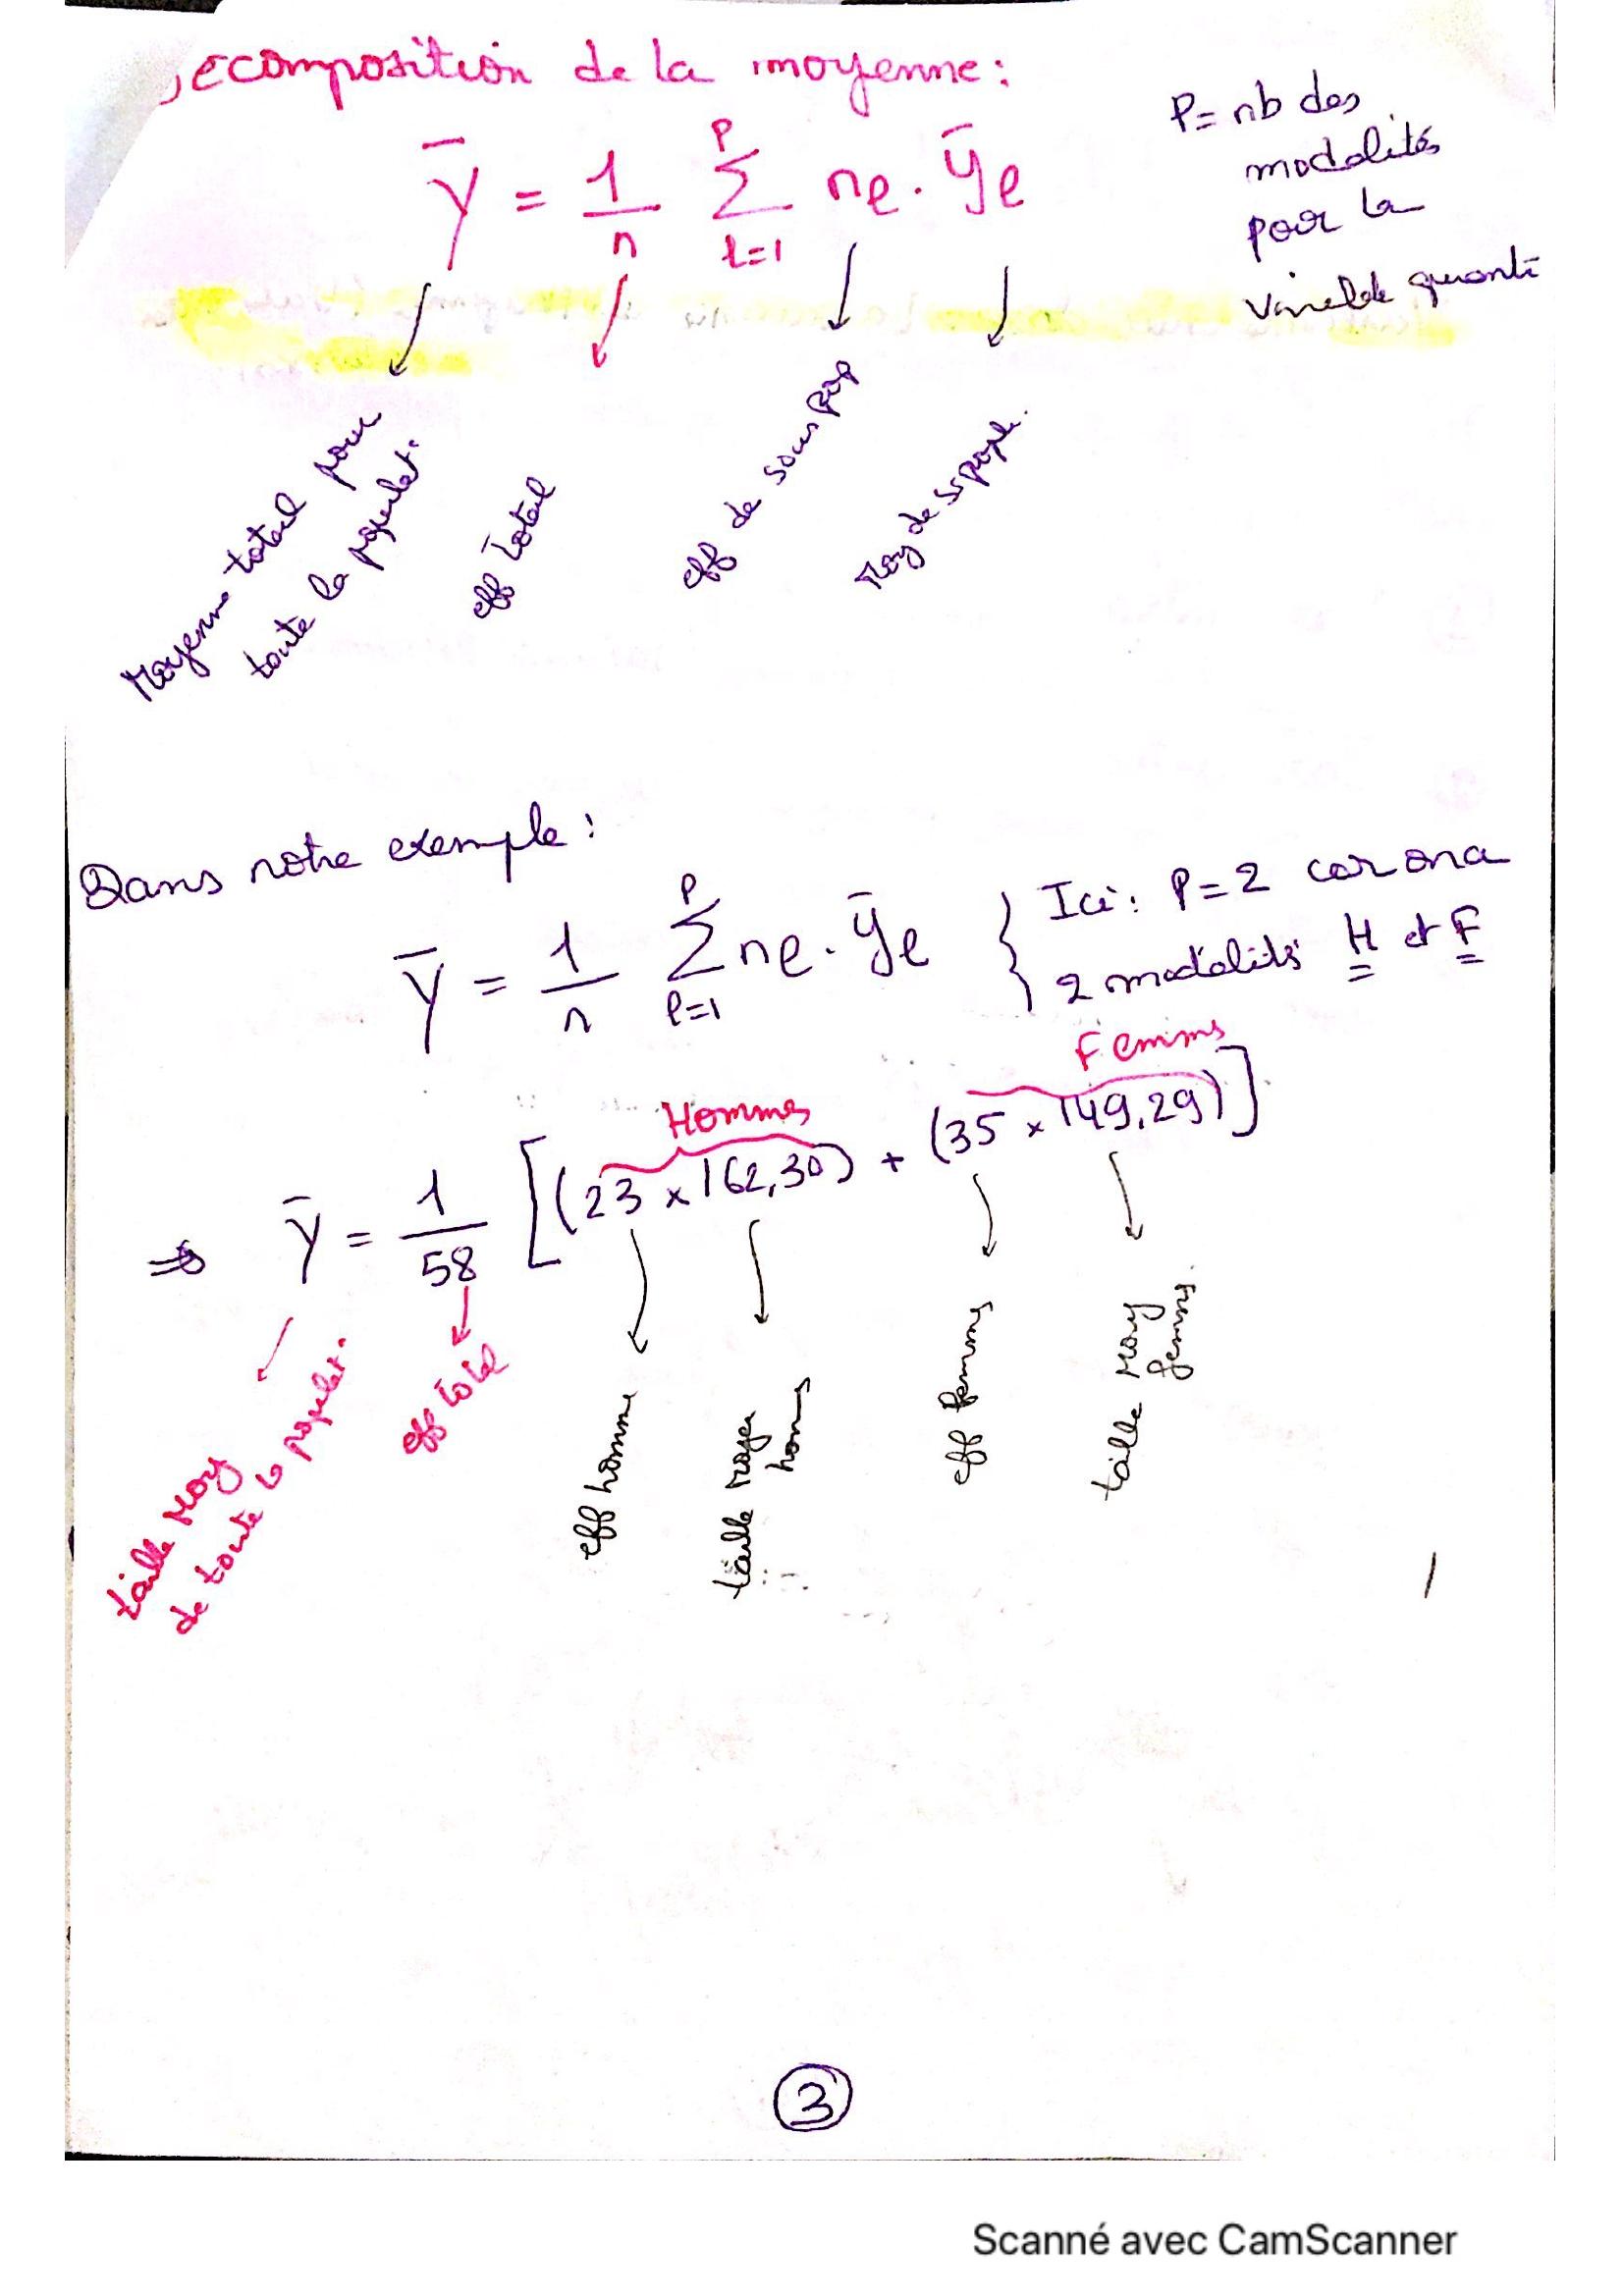 écomposition de la moyenne :
P = nb des
modalités
pour la
variable quanti
Ȳ = 1/n Σ_{l=1}^{P} nₗ . ȳₗ
Moyenne total pour
toute la populat.
eff total
eff de sous pop
Moy de ss popul.
Dans notre exemple :
Ȳ = 1/n Σ_{l=1}^{P} nₗ . ȳₗ
Ici : P = 2 car on a
2 modalités H et F
Hommes
Femmes
⇒ Ȳ = 1/58 [(23 × 162,30) + (35 × 149,29)]
taille Moy
de toute la populat.
eff total
eff homme
taille Moye
hom
eff femmes
taille Moy
femms.
3
Scanné avec CamScanner